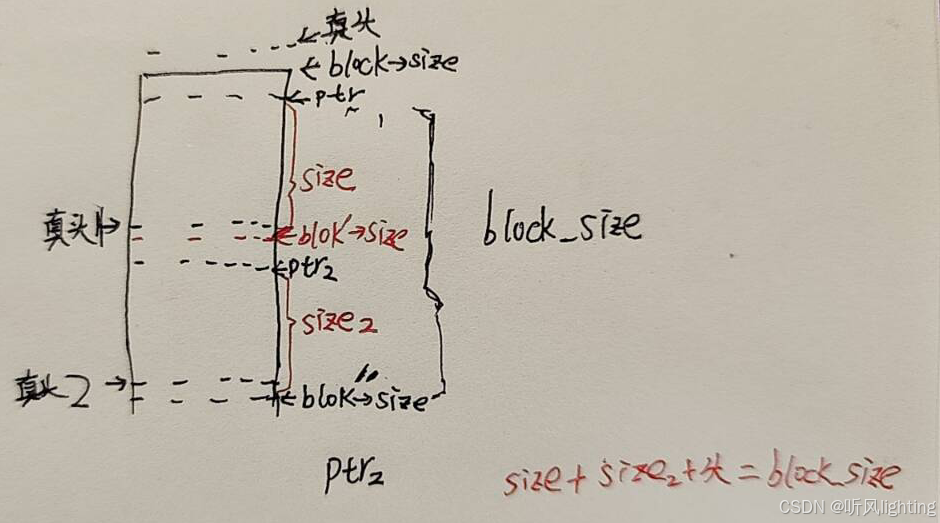 ←真头
←block→size
←ptr
size
真头1→
←blok→size
block_size
←ptr₂
size₂
真头2→
←blok→size
ptr₂
size+size₂+头=block_size
CSDN @听风lighting